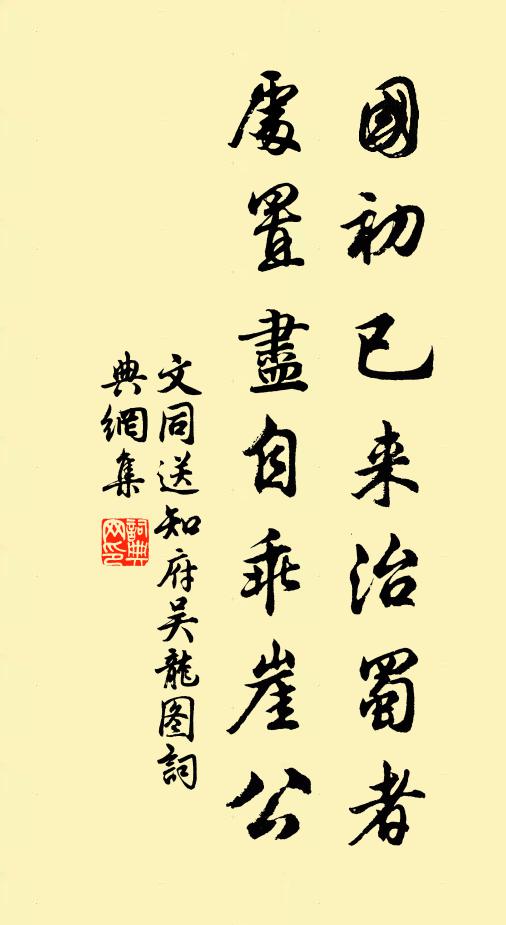 國初已来治蜀者
處置盡自乖崖公
文同送知府吴龍图詞
典網集
詞典网印